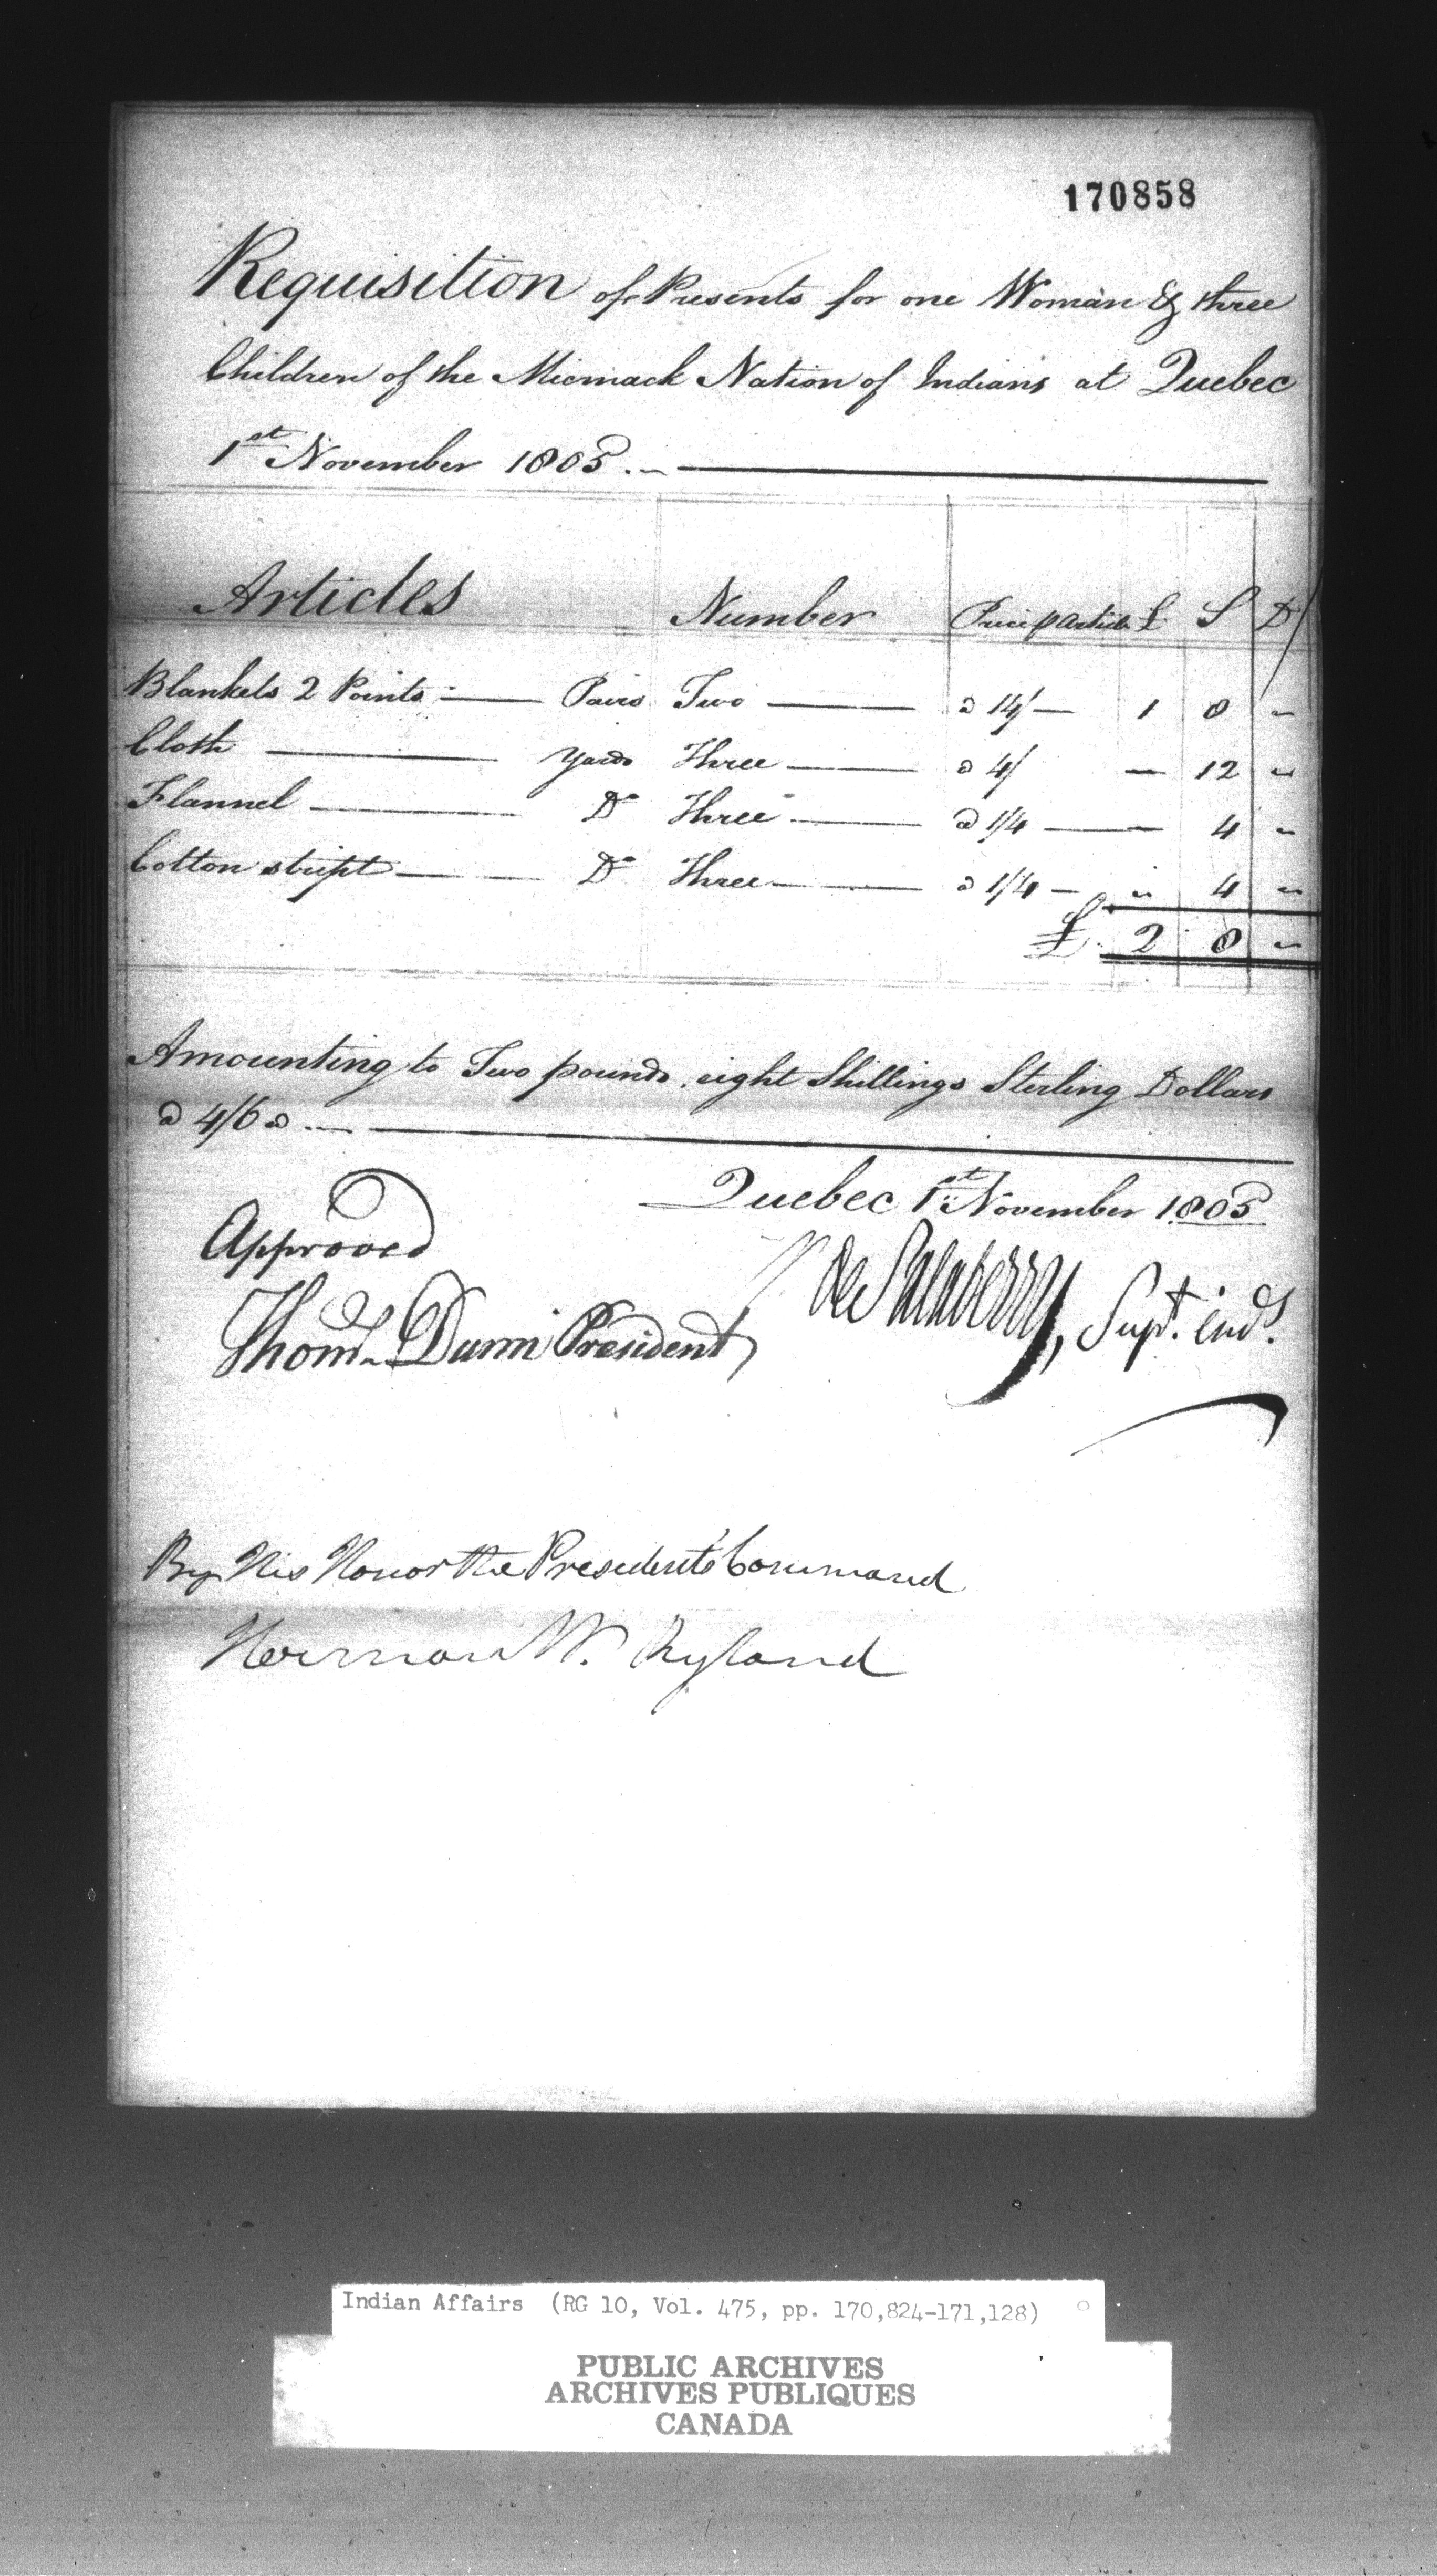 170858
Requisition of Presents for one Woman & three
Children of the Micmack Nation of Indians at Quebec
1st November 1805.
Articles Number Price p Article £ S D
Blankets 2 Points Pairs Two a 14/ 1 8 "
Cloth Yards Three a 4/ — 12 "
Flannel Do Three a 1/4 — 4 "
Cotton stript Do Three a 1/4 " 4 "
£ 2 8 "
Amounting to Two pounds, eight Shillings Sterling Dollars
a 4/6
Quebec 1st November 1805
Approved
de Salaberry, Supt. inds.
Thoms Dunn President
By His Honor the President's Command
Herman W. Ryland
Indian Affairs (RG 10, Vol. 475, pp. 170,824-171,128)
PUBLIC ARCHIVES
ARCHIVES PUBLIQUES
CANADA